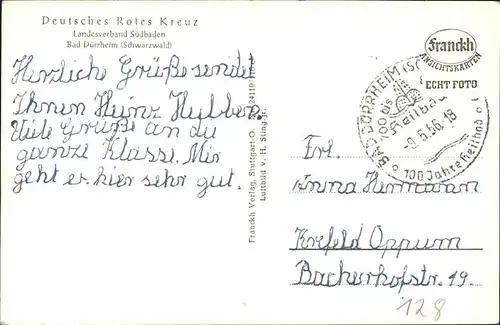 Deutsches Rotes Kreuz
Landesverband Südbaden
Bad Dürrheim (Schwarzwald)
Herzliche Grüße sendet
Ihnen Heinz Hubben.
Viele Grüße an du
ganze Klasse. Mir
geht es hier sehr gut.
Franckh Verlag, Stuttgart O.
Luftbild v. H.
Franckh
ANSICHTSKARTEN
ECHT FOTO
BAD DÜRRHEIM
100 Jahre Heilbad
-9.6.56.18
Frl.
Anna Hermann
Krefeld Oppum
Bacherhofstr. 19.
128